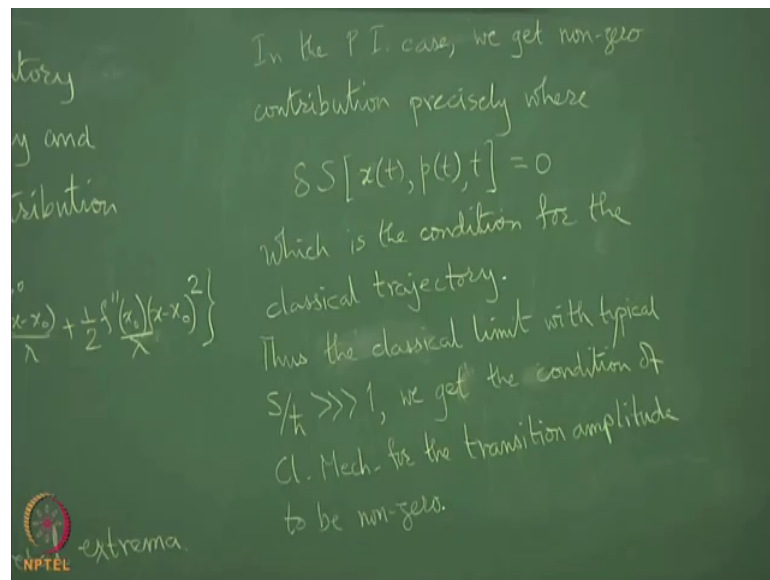 tory
y and
tribution
x-x₀)/λ + 1/2 f''(x₀)/λ (x-x₀)² }
extrema
In the P I. case, we get non-zero
contribution precisely where
δS[x(t), p(t), t] = 0
which is the condition for the
classical trajectory.
Thus the classical limit with typical
S/ħ >>> 1, we get the condition of
Cl. Mech. for the transition amplitude
to be non-zero.
NPTEL